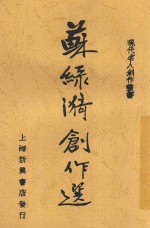 現代名人創作叢書
蘇綠漪創作選
上海新興書店發行